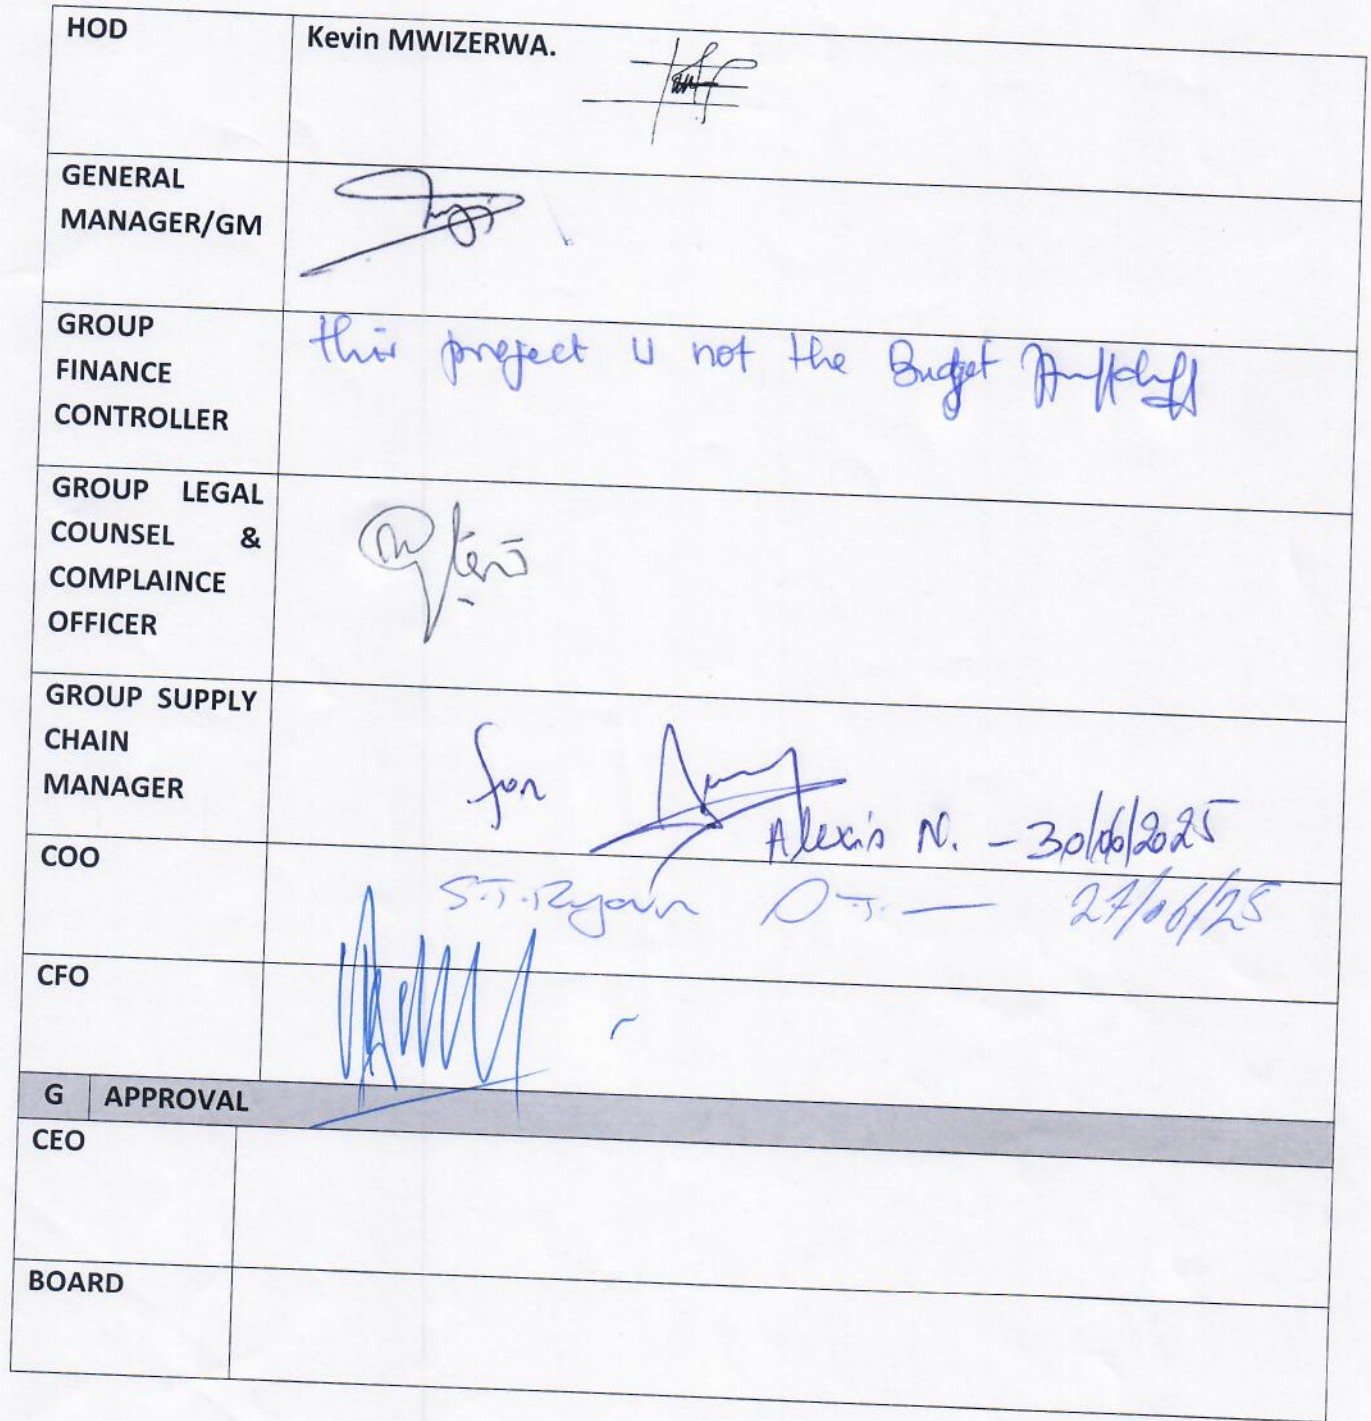 HOD
Kevin MWIZERWA.
GENERAL
MANAGER/GM
GROUP
FINANCE
CONTROLLER
this project is not the Budget
GROUP LEGAL
COUNSEL &
COMPLAINCE
OFFICER
GROUP SUPPLY
CHAIN
MANAGER
for
Alexis N. - 30/06/2025
COO
S.T. Ryan 27/06/25
CFO
G APPROVAL
CEO
BOARD